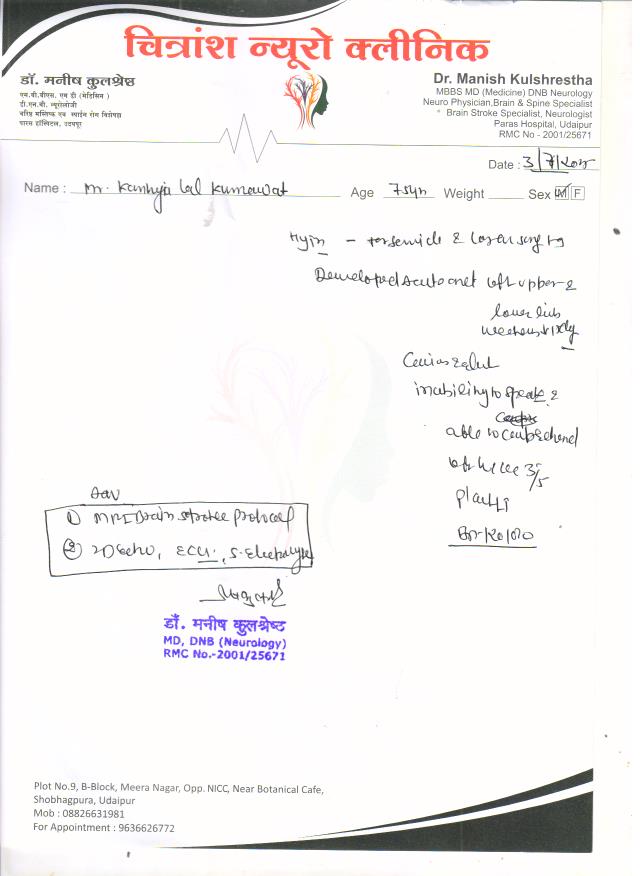 चित्रांश न्यूरो क्लीनिक
डॉ. मनीष कुलश्रेष्ठ
एम.बी.बीएस. एम डी (मेडिसिन)
डी.एन.बी. न्यूरोलॉजी
वरिष्ठ मस्तिष्क एवं स्पाईन रोग विशेषज्ञ
पारस हॉस्पिटल, उदयपुर
Dr. Manish Kulshrestha
MBBS MD (Medicine) DNB Neurology
Neuro Physician,Brain & Spine Specialist
Brain Stroke Specialist, Neurologist
Paras Hospital, Udaipur
RMC No - 2001/25671
Date : 3/7/2025
Name : Mr. Kanhya lal Kumawat Age 75yr Weight Sex M F
Developed acute onset left upper &
lower limb
inability to speak &
able to comprehend
3/5
Adv
① MRI Brain stroke protocol
② 2D echo, ECG, S. Electrolyte
डॉ. मनीष कुलश्रेष्ठ
MD, DNB (Neurology)
RMC No.-2001/25671
Plot No.9, B-Block, Meera Nagar, Opp. NICC, Near Botanical Cafe,
Shobhagpura, Udaipur
Mob : 08826631981
For Appointment : 9636626772